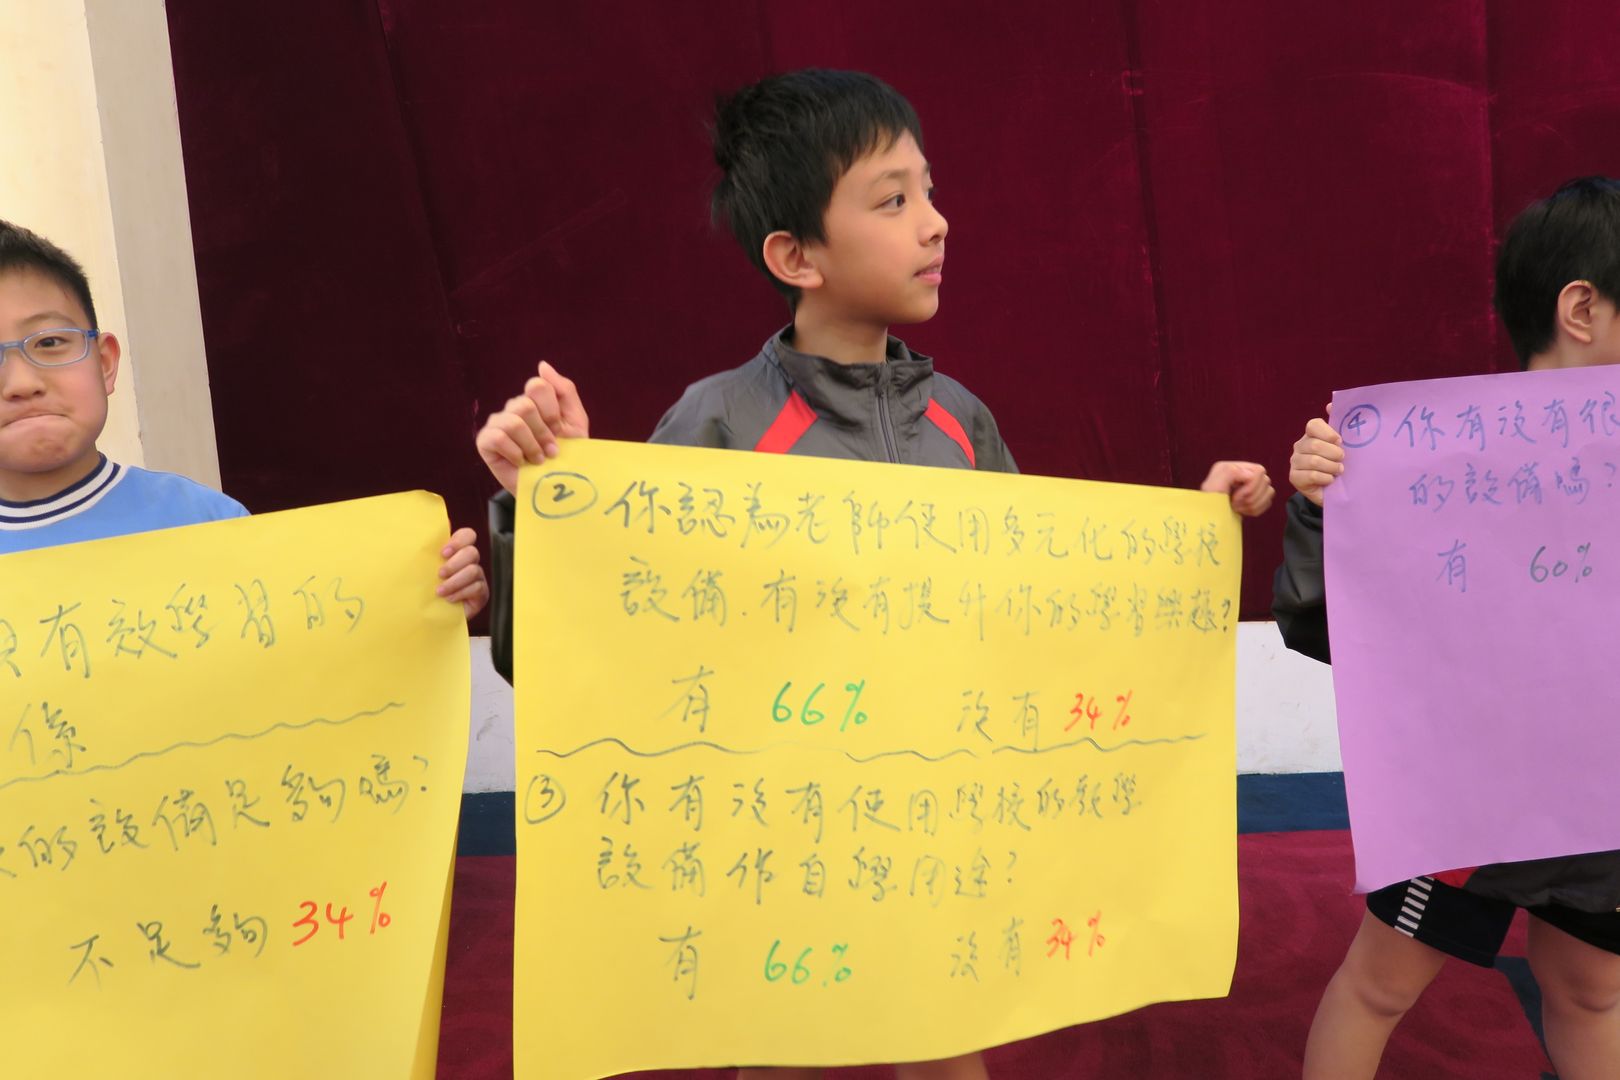 有效學習的
係
的設備足夠嗎?
不足夠 34%
② 你認為老師使用多元化的學校
設備.有沒有提升你的學習樂趣?
有 66% 沒有 34%
③ 你有沒有使用學校的教學
設備作自學用途?
有 66% 沒有 34%
④ 你有沒有很
的設備嗎?
有 60%